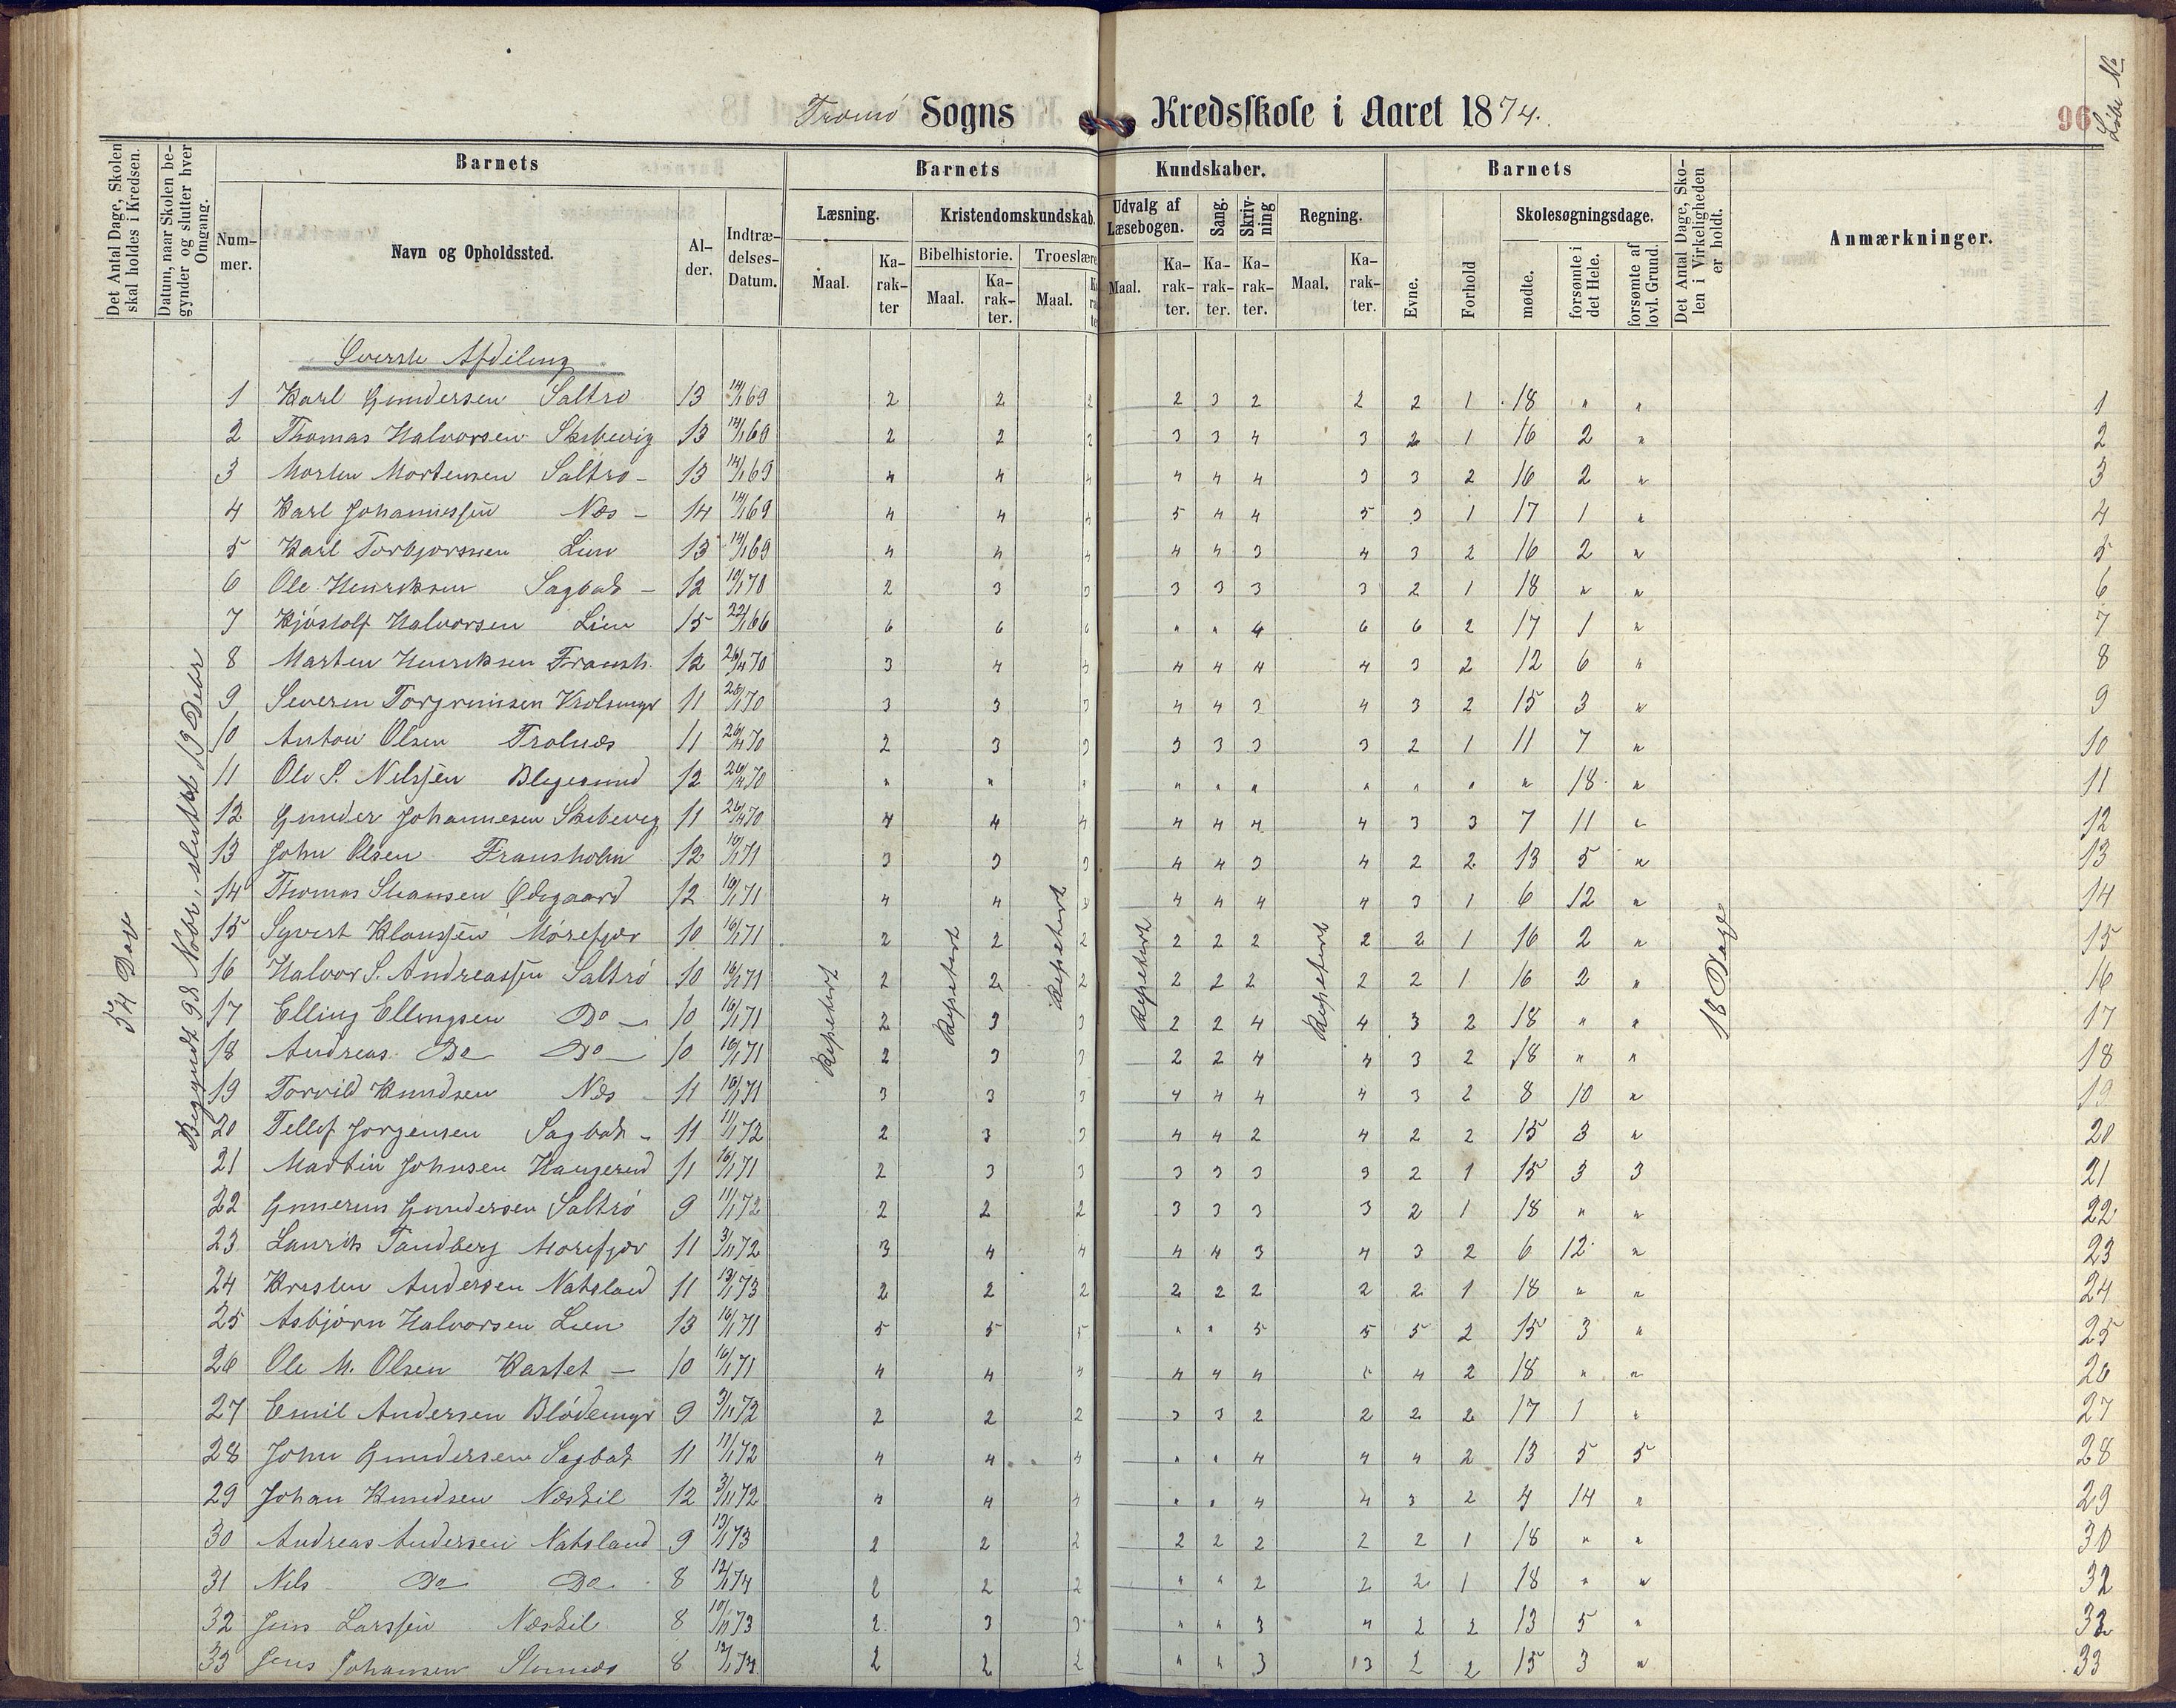 Tromø Sogns Kredsskole i Aaret 1874.
96
Løbe №
Det Antal Dage, Skolen skal holdes i Kredsen.
Datum, naar Skolen begynder og slutter hver Omgang.
Barnets
Nummer.
Navn og Opholdssted.
Alder.
Indtrædelses-Datum.
Barnets Kundskaber.
Læsning.
Kristendomskundskab.
Udvalg af Læsebogen.
Sang.
Skrivning
Regning.
Bibelhistorie.
Troeslære
Maal.
Karakter
Maal.
Karakter.
Maal.
Maal.
Karakter.
Karakter.
Karakter.
Maal.
Karakter.
Barnets
Evne.
Forhold
Skolesøgningsdage.
mødte.
forsømte i det Hele.
forsømte af lovl. Grund.
Det Antal Dage, Skolen i Virkeligheden er holdt.
Anmærkninger.
54 Dage
Begyndt 98 Novbr, sluttet 19 Debr
Repetert
Repetert
Repetert
Repetert
Repetert
18 Dage
Øverste Afdeling
1 Karl Gundersen Saltrø 13 14/1 69 2 2 2 2 3 2 2 2 1 18 " " 1
2 Thomas Halvorsen Skibevig 13 14/1 69 2 2 2 3 3 4 3 2 1 16 2 " 2
3 Morten Mortensen Saltrø - 13 14/1 69 4 4 4 4 4 4 3 3 2 16 2 " 3
4 Karl Johannessen Næs - 14 14/1 69 4 4 4 5 4 4 5 3 1 17 1 " 4
5 Karl Torbjørnsen Lien 13 14/1 69 4 4 4 4 4 3 4 3 2 16 2 " 5
6 Ole Henriksen Sagbak - 12 10/1 70 2 3 3 3 3 3 3 2 1 18 " " 6
7 Kjøstolf Halvorsen Lien 15 22/1 66 6 6 6 " " 4 6 6 2 17 1 " 7
8 Marten Henriksen Fransh. 12 26/4 70 3 4 4 4 4 4 4 3 2 12 6 " 8
9 Severin Torgrimsen 11 70 3 3 3 4 4 3 4 3 2 15 3 " 9
10 Anton Olsen Trolnæs 11 26/4 70 2 3 3 3 3 3 3 2 1 11 7 " 10
11 Ole S. Nilssen 12 26/4 70 " " " " " " " " " " 18 " 11
12 Gunder Johannesen Skibevig 11 26/4 70 4 4 4 4 4 4 4 3 3 7 11 " 12
13 John Olsen Fransholm 12 16/1 71 3 3 3 4 4 3 4 2 2 13 5 " 13
14 Thomas Ødegaard 12 16/1 71 4 4 4 4 4 4 3 1 6 12 " 14
15 Syvert Klaussen Mørefjær 10 16/1 71 2 2 2 2 2 2 2 2 1 16 2 " 15
16 Halvor S. Andreassen Saltrø 10 16/1 71 2 2 2 2 2 2 2 2 1 16 2 " 16
17 Elling Ellingsen Do - 10 16/1 71 2 3 3 2 2 4 4 3 2 18 " " 17
18 Andreas Do Do 10 16/1 71 2 3 3 2 2 4 4 3 2 18 " " 18
19 Torvild Knudsen Næs 11 16/1 71 3 3 3 4 4 4 4 3 2 8 10 " 19
20 Tellef Jørgensen Sagbak - 11 11/1 72 2 3 3 4 4 2 4 2 2 15 3 " 20
21 Martin Johnsen Haugerud 11 16/1 71 2 3 3 3 3 3 3 2 1 15 3 3 21
22 Gunerius Gundersen Saltrø 9 11/1 72 2 2 2 3 3 3 3 2 1 18 " " 22
23 Laurits Tandberg Morefjær 11 3/11 72 3 4 4 4 4 3 4 3 2 6 12 " 23
24 Kristen Andersen Natsland 11 13/1 73 2 2 2 2 2 2 2 2 1 18 " " 24
25 Asbjørn Halvorsen Lien 13 16/1 71 5 5 5 " " 5 5 5 2 15 3 " 25
26 Ole M. Olsen Kastet - 10 16/1 71 4 4 4 4 4 4 4 2 18 " " 26
27 Emil Andersen Blødemyr 9 3/11 72 2 2 2 3 3 2 2 2 2 17 1 " 27
28 John Gundersen Sagbak 11 11/1 72 4 4 4 " " 4 4 4 2 13 5 5 28
29 Johan Knudsen Næskil 12 3/11 72 4 4 4 " " 4 4 3 2 4 14 " 29
30 Andreas Andersen Natsland 9 13/1 73 2 2 2 2 2 2 2 2 1 18 " " 30
31 Nils Do Do 8 12/1 74 2 2 2 " " 2 2 2 1 18 " " 32
32 Jens Larssen Næskil 8 10/11 73 2 3 3 " " 3 4 2 2 13 5 " 32
33 Jens Johansen 8 12/1 74 2 2 2 " " 3 3 2 2 15 3 " 33